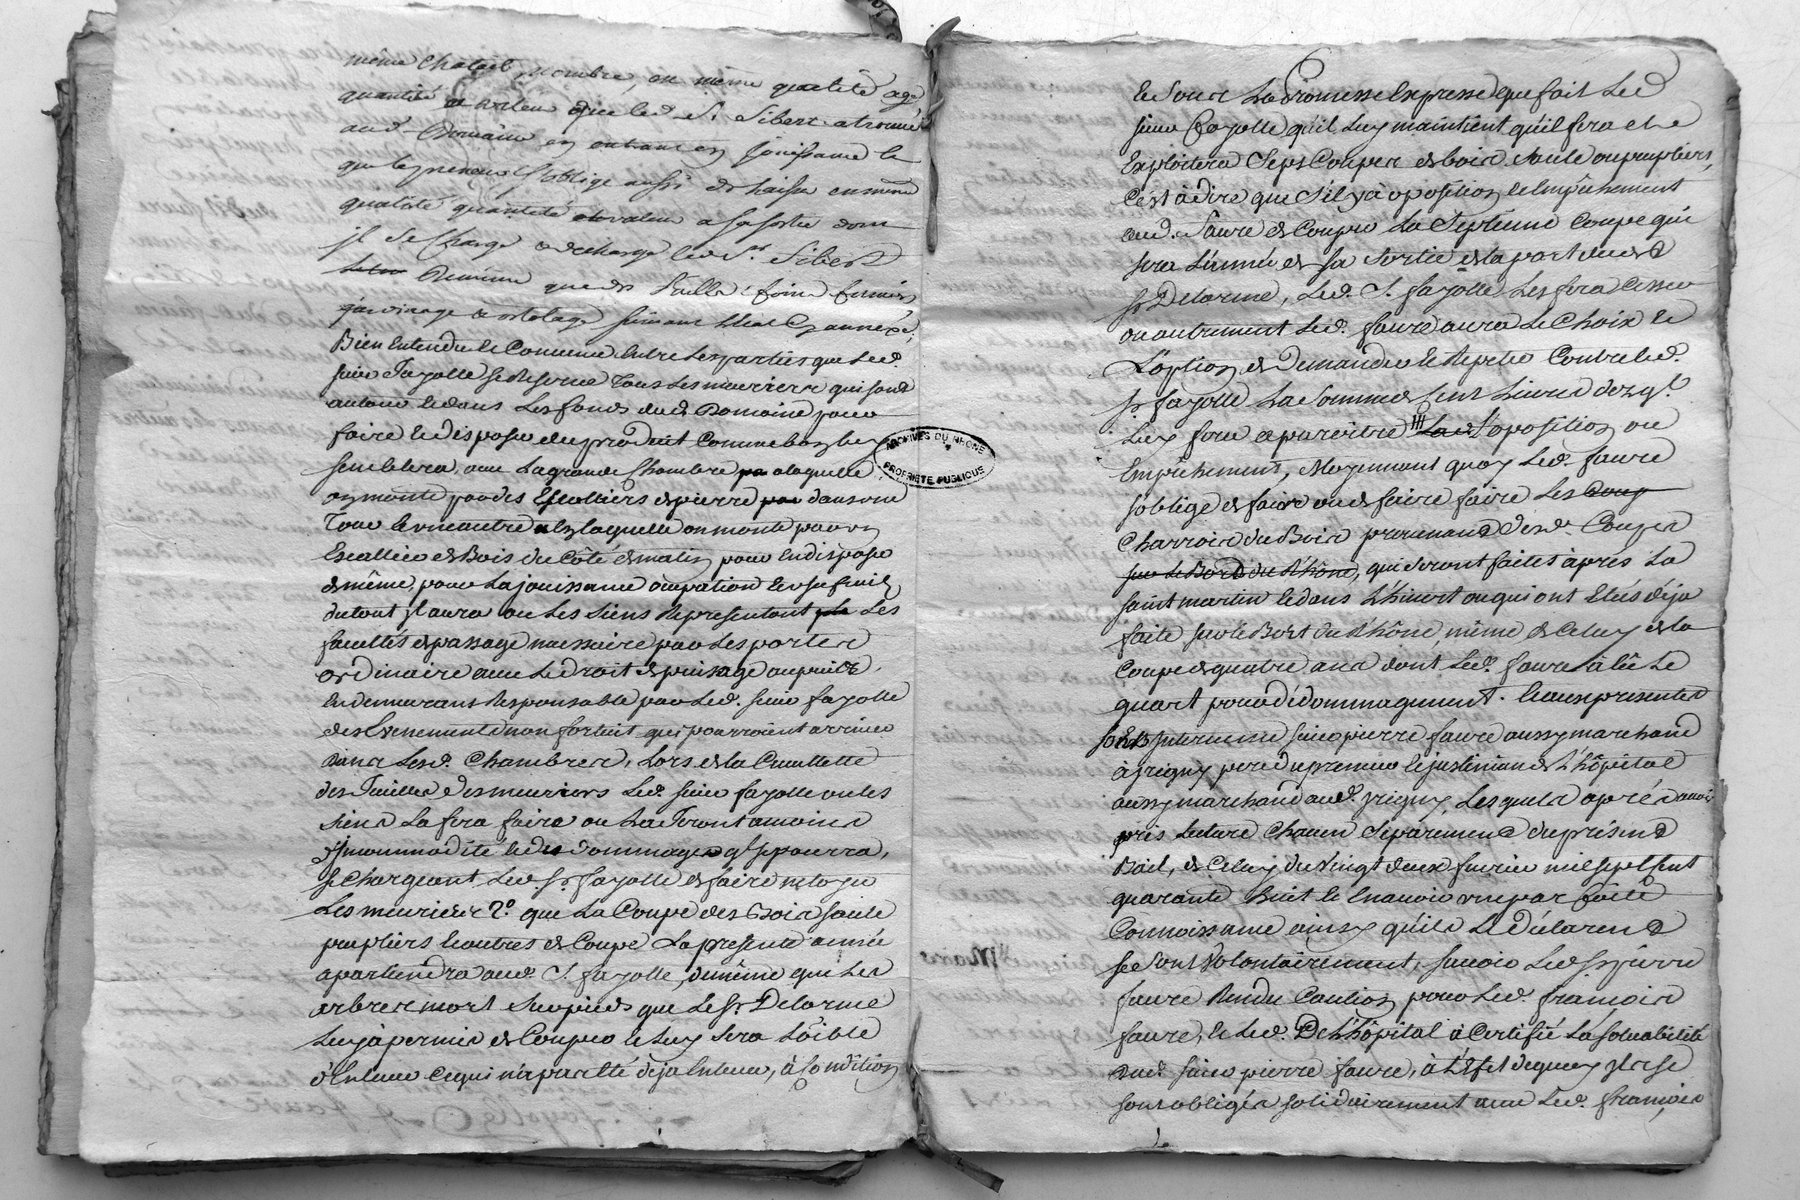 même Chatail, nombre, en même qualité age
quantité et valeur que led. Sr. Sibert a trouvé
aud. Domaine en entrant en joüissance le
que le preneur s'oblige aussi de laisser en même
qualité quantité et valeur a sa sortie dont
jl se Charge et decharge led. Sr. Sibert
Demême que de paille, foin, fumiers
suivant l'Etat cy annéxé,
Bien Entendu & Convenu Entre Les parties que Led.
sieur Fayolle se Reserve Tous Les meuriers qui sont
autour & dans Les fonds dud. Domaine pour
faire & disposer du produit Comme bon luy
semblera, avec La grande Chambre a laquelle
on monte par des Escalliers de pierre dans une
Tour & une autre a laquelle on monte par un
Escallier de Bois du Côté de matin, pour En disposer
de même, pour La jouissance ocupation & usufruit
du tout jl aura ou Les siens Representant Les
facultés de passage necessaire par Les portes
ordinaire avec Le droit de puisage au puits,
En demeurant Responsable par Led. sieur fayolle
des Evenements non fortuit qui pourroient arriver
dans Lesd. Chambres, Lors de la Cueillette
des Feuilles des meuriers Led. sieur fayolle ou les
siens La fera faire ou La Feront a moins
d'jncommodité & de dommage qu'jl pourra,
se Chargeant Led. Sr. fayolle de faire netoyer
Les meuriers 2o. que La Coupe des Bois saule
peupliers & autres de Coupe La presente année
apartiendra aud. S. fayolle, demême que Les
arbres mort sur pieds que Le Sr. Delorme
Luy à permis de Couper & Luy sera Loisible
d'Enlever Ce qui n'a pas Eté déja Enlevé, à Condition
& sous La Promesse Expresse que fait Led.
sieur Fayolle qu'il Luy maintient qu'il fera & Le
Exploitera Sept Coupes de bois saule ou peupliers,
C'est à dire que S'il y à oposition & Empêchement
aud. faure de Couper La Septieme Coupe qui
sera L'année de sa Sortie de la part dud.
Sr Delorme, Led. S. fayolle Les fera Cesser
ou autrement Led. faure aura Le Choix &
L'option de Demander & Repeter Contre Led.
Sr. fayolle La Somme de Cent Livres
Luy faire aparoitre L'oposition ou
Empêchement, Moyennant quoy Led. faure
s'oblige de faire ou de faire faire Les Coup
Charrois du Bois provenant desd. Coupes
sur Le Bord du Rhône, qui seront faites après La
saint martin & dans L'hivert ou qui ont Etés déja
faite sur le Bort du Rhône même de Celuy de la
Coupe de quatre ans dont Led. faure à Eû Le
quart pour dédommagement. & aux presentes
sont Intervenu sieur pierre faure aussy marchand
à grigny pere du premier & justinian de L'hôpital
aussy marchand aud. grigny, Lesquels après avoir
pris Lecture Chacun Séparément du présent
Bail, & Celuy du Vingt deux fevrier mil sept Cent
quarante huit & En avoir une parfaite
Connoissance ainsy qu'ils Le Déclarent
se sont Volontairement, savoir Led. Sr. pierre
faure Rendu Caution pour Led. françois
faure, & Led. De L'hôpital à Certifié La solvabilité
dud. sieur pierre faure, à L'Effet de quoy jls se
sont obligés solidairement avec Led. françois
ARCHIVES DU RHÔNE
PROPRIÉTÉ PUBLIQUE